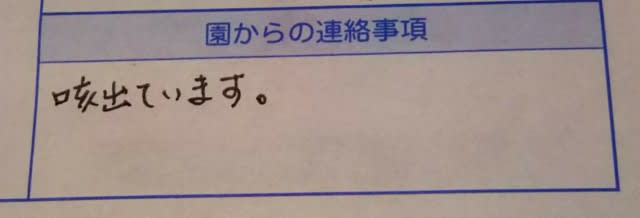 園からの連絡事項
咳出ています。